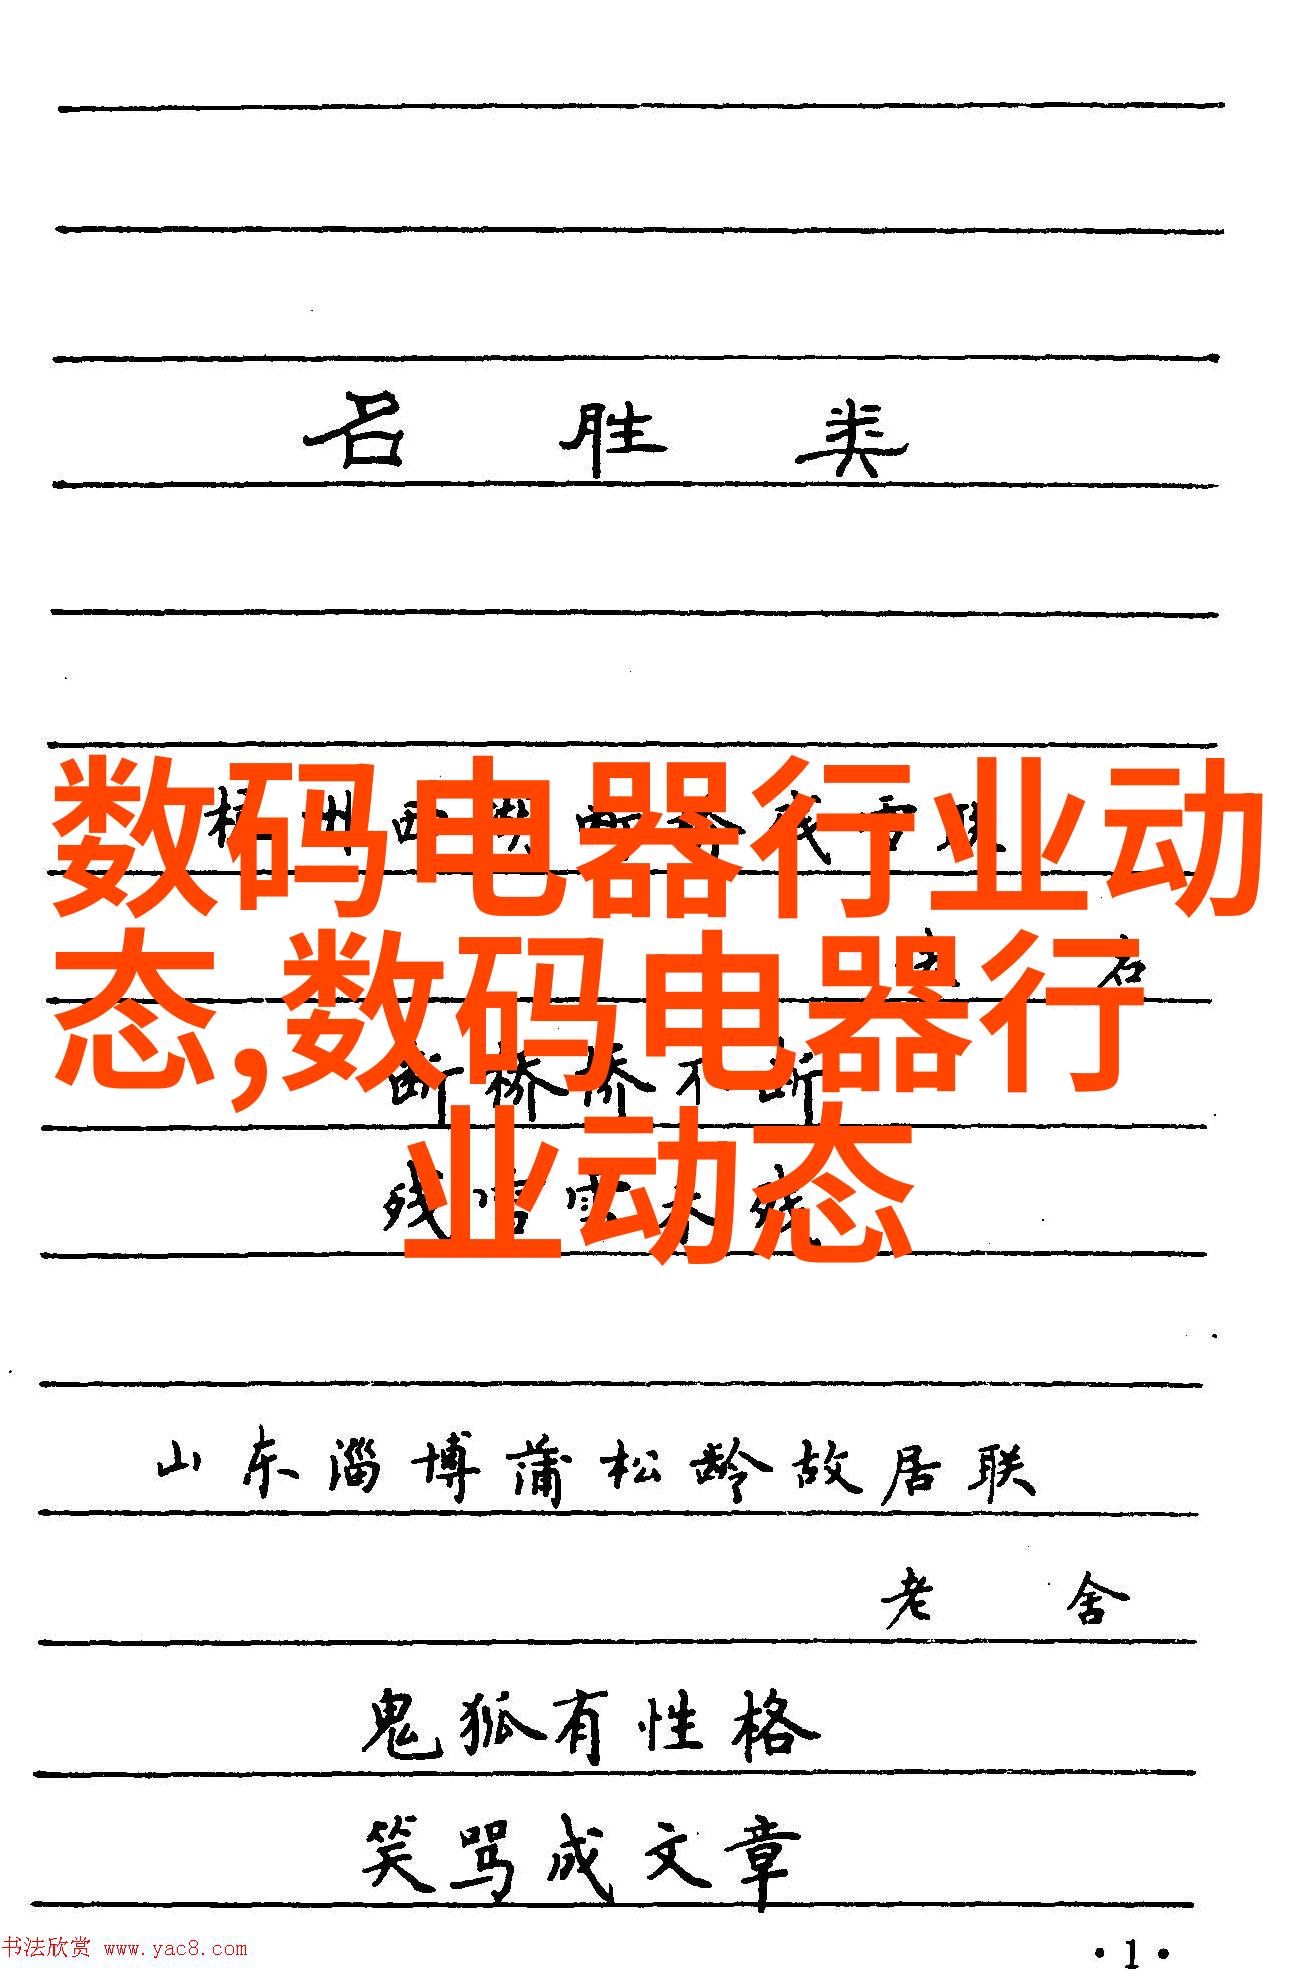 名胜类
数码电器行业动
态,数码电器行
业动态
断桥桥不断
残雪雪不残
山东淄博蒲松龄故居联
老舍
鬼狐有性格
笑骂成文章
书法欣赏 www.yac8.com
·1·